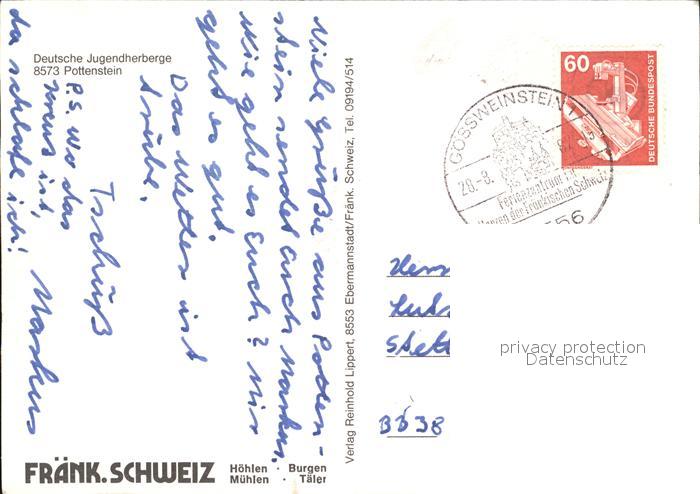 Deutsche Jugendherberge
8573 Pottenstein
Viele Grüße aus Potten-
stein sendet Euch Markus.
Wie geht es Euch? Mir
geht es gut.
Das Wetter ist
trübe.
Tschüß
Markus
P.S. Wo das
Kreuz ist,
da schlafe ich!
FRÄNK. SCHWEIZ
Höhlen · Burgen
Mühlen · Täler
Verlag Reinhold Lippert, 8553 Ebermannstadt/Fränk. Schweiz, Tel. 09194/514
60
DEUTSCHE BUNDESPOST
GÖSSWEINSTEIN 1
28.-8.
Ferienzentrum im
Herzen der Fränkischen Schweiz
Herr
Stett
privacy protection
Datenschutz